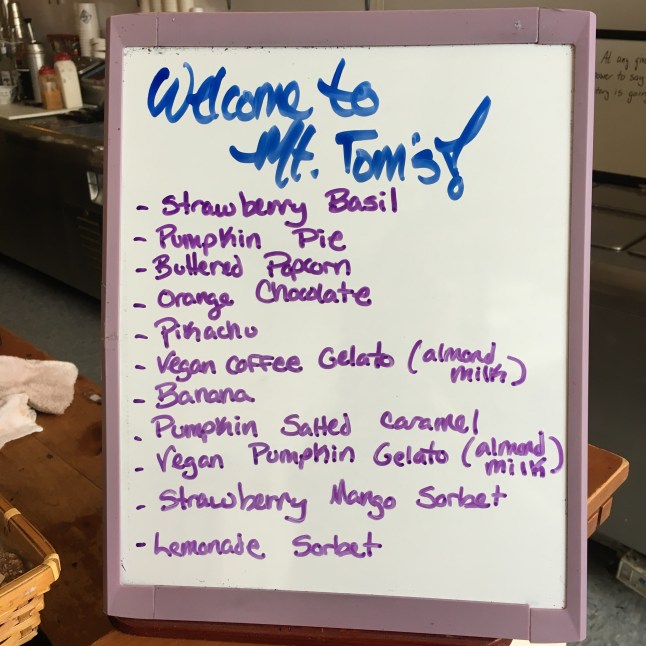 Welcome to
Mt. Tom's!
- Strawberry Basil
- Pumpkin Pie
- Buttered Popcorn
- Orange Chocolate
- Pikachu
- Vegan Coffee Gelato (almond
milk)
- Banana
- Pumpkin Salted Caramel
- Vegan Pumpkin Gelato (almond
milk)
- Strawberry Mango Sorbet
- Lemonade Sorbet
At any
to say
is